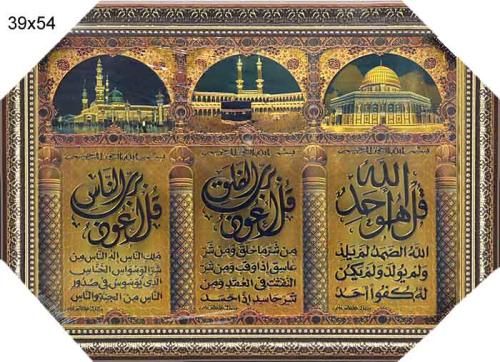 39x54
بسم الله الرحمن الرحيم
قل هو الله احد
الله الصمد لم يلد
ولم يولد ولم يكن
له كفوا احد
بسم الله الرحمن الرحيم
قل اعوذ برب الفلق
من شر ما خلق ومن شر
غاسق اذا وقب ومن شر
النفثت في العقد ومن
شر حاسد اذا حسد
بسم الله الرحمن الرحيم
قل اعوذ برب الناس
ملك الناس اله الناس من
شر الوسواس الخناس
الذي يوسوس في صدور
الناس من الجنة والناس